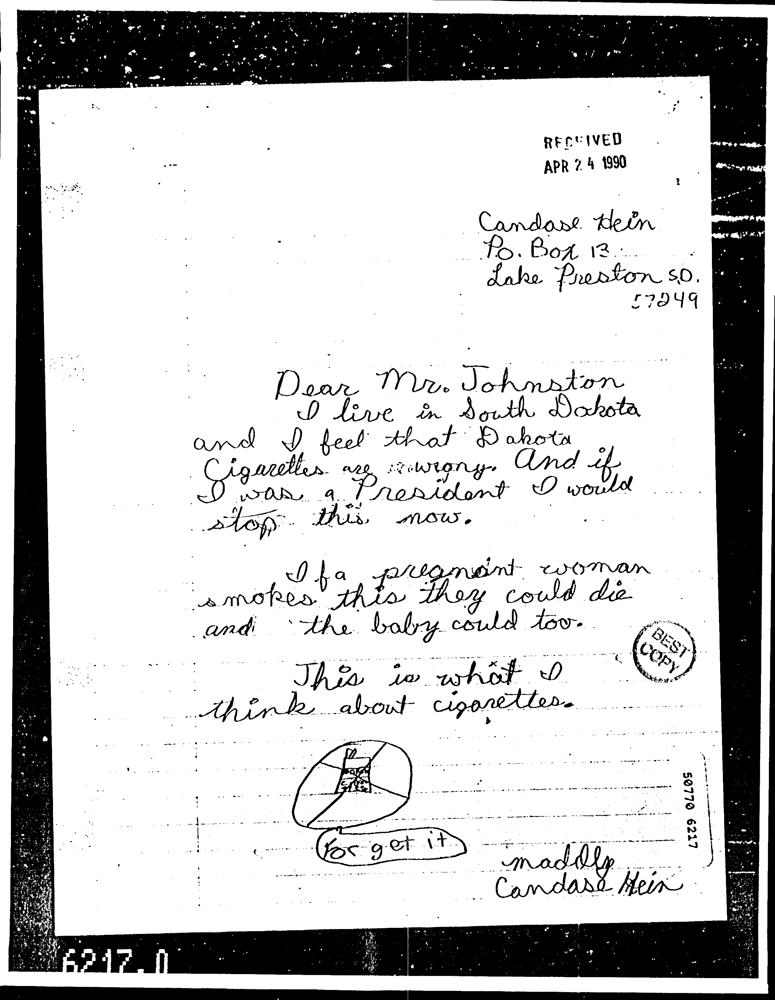 RECEIVED
APR 24 1990
Candase Hein
Po. Box 13
Lake Preston S.D.
57249
Dear Mr. Johnston
I live in South Dakota
and I feel that Dakota
Cigarettes are wrong. And if
I was a President I would
stop this now.
If a pregnant woman
smokes this they could die
and the baby could too.
BEST
COPY
This is what I
think about cigarettes.
For get it
madlly
Candase Hein
50770 6217
6217.0